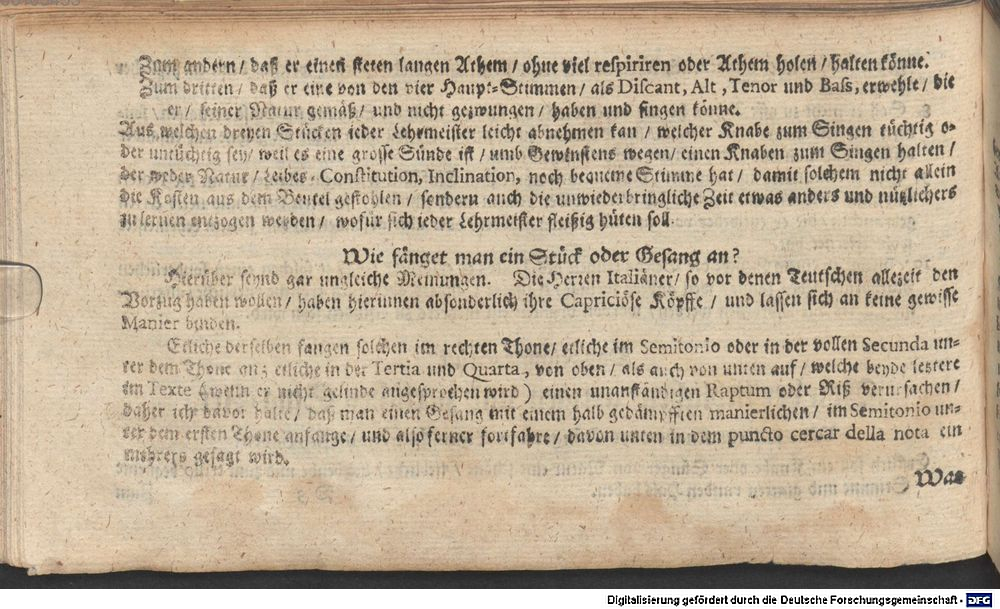 Zum andern / daß er einen steten langen Athem / ohne viel respiriren oder Athem holen / halten könne.
Zum dritten / daß er eine von den vier Haupt-Stimmen / als Discant, Alt, Tenor und Bass, erwehle / die
er / seiner Natur gemäß / und nicht gezwungen / haben und singen könne.
Aus welchen dreyen Stücken ieder Lehrmeister leicht abnehmen kan / welcher Knabe zum Singen tüchtig o-
der untüchtig sey / weil es eine grosse Sünde ist / umb Gewinstens wegen / einen Knaben zum Singen halten /
der weder Natur / Leibes-Constitution, Inclination, noch bequeme Stimme hat / damit solchem nicht allein
die Kosten aus dem Beutel gestohlen / sondern auch die unwiederbringliche Zeit etwas anders und nützlichers
zu lernen entzogen werden / wofür sich ieder Lehrmeister fleißig hüten soll.
Wie fänget man ein Stück oder Gesang an?
Hierüber seynd gar ungleiche Meinungen. Die Herren Italiäner / so vor denen Teutschen allezeit den
Vorzug haben wollen / haben hierinnen absonderlich ihre Capriciöse Köpffe / und lassen sich an keine gewisse
Manier binden.
Etliche derselben fangen solchen im rechten Thone / etliche im Semitonio oder in der vollen Secunda un-
ter dem Thone an; etliche in der Tertia und Quarta, von oben / als auch von unten auf / welche beyde letztere
im Texte (wenn er nicht gelinde angesprochen wird) einen unanständigen Raptum oder Riß verursachen /
daher ich davor halte / daß man einen Gesang mit einem halb gedämpfften manierlichen / im Semitonio un-
ter dem ersten Thone anfange / und also ferner fortfahre / davon unten in dem puncto cercar della nota ein
mehrers gesagt wird.
Was
Digitalisierung gefördert durch die Deutsche Forschungsgemeinschaft - DFG